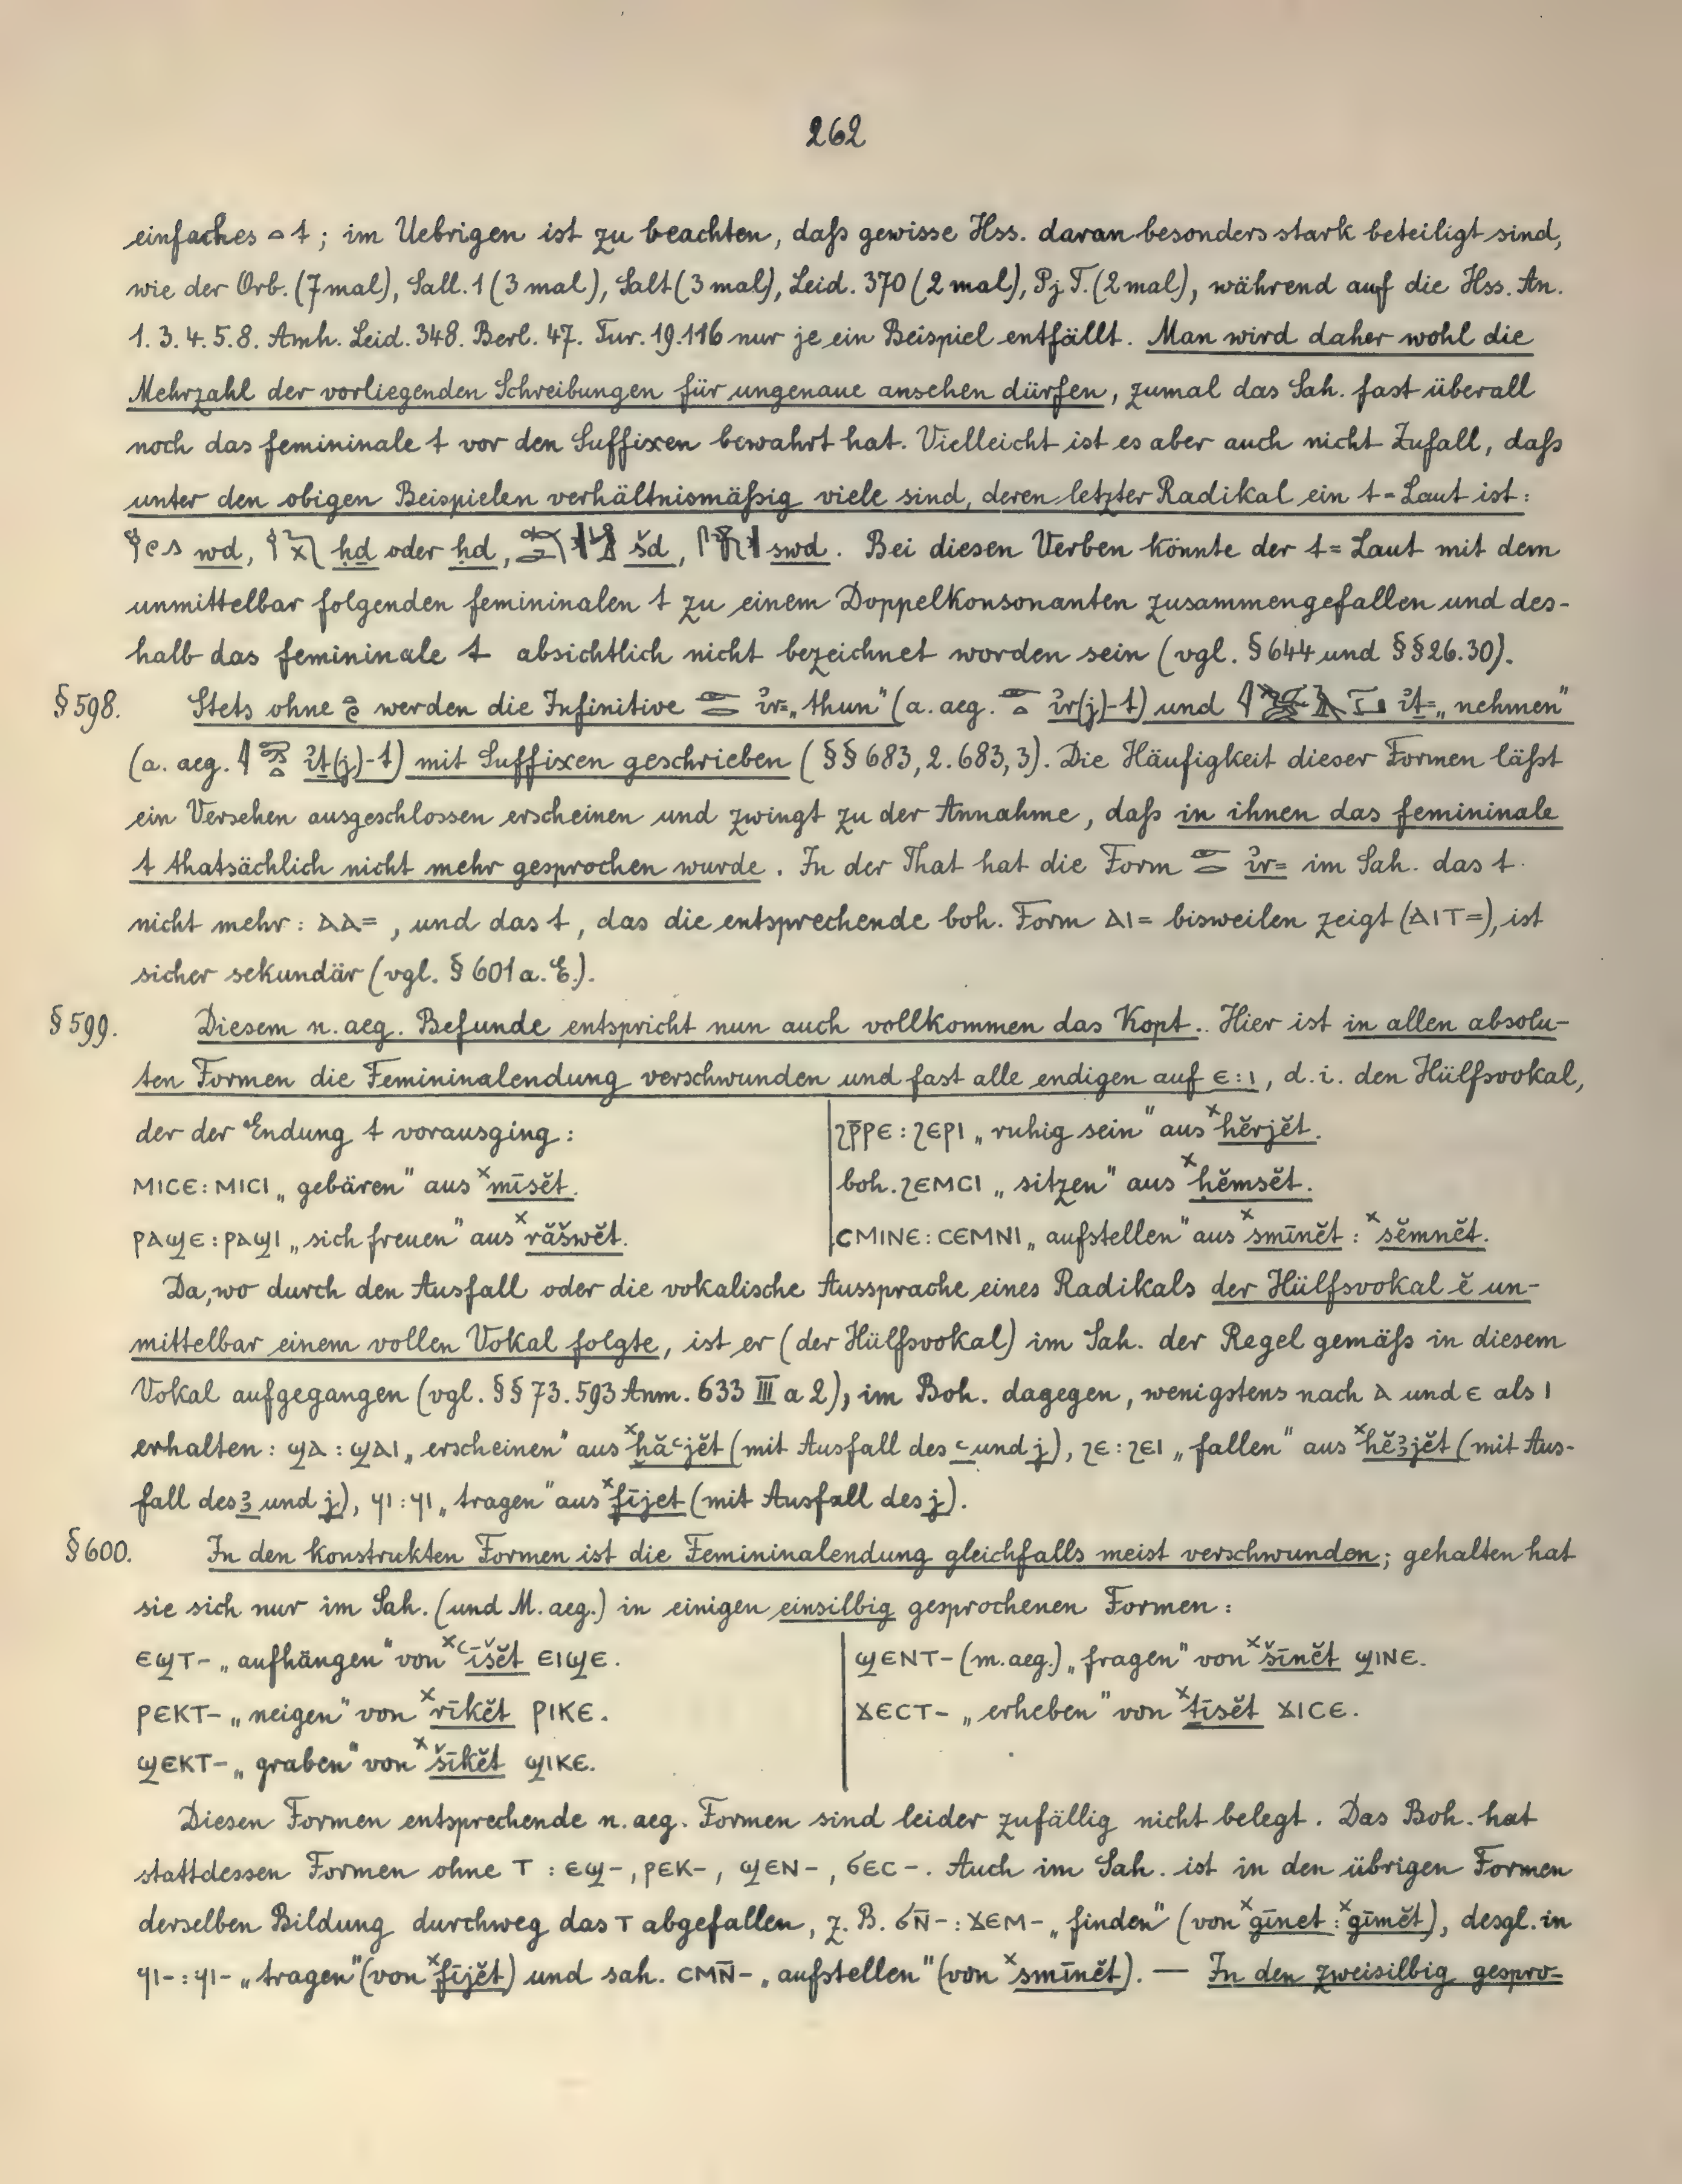 262
einfaches 𓏏 t ; im Uebrigen ist zu beachten, daß gewisse Hss. daran besonders stark beteiligt sind,
wie der Orb. (7mal), Sall. 1 (3 mal), Salt (3 mal), Leid. 370 (2 mal), Pj. T. (2 mal), während auf die Hss. An.
1. 3. 4. 5. 8. Amh. Leid. 348. Berl. 47. Tur. 19. 116 nur je ein Beispiel entfällt. Man wird daher wohl die
Mehrzahl der vorliegenden Schreibungen für ungenaue ansehen dürfen, zumal das Sah. fast überall
noch das femininale t vor den Suffixen bewahrt hat. Vielleicht ist es aber auch nicht Zufall, daß
unter den obigen Beispielen verhältnismäßig viele sind, deren letzter Radikal ein t-Laut ist:
wd, ḥḏ oder ḥd, šd, swd. Bei diesen Verben könnte der t-Laut mit dem
unmittelbar folgenden femininalen t zu einem Doppelkonsonanten zusammengefallen und des-
halb das femininale t absichtlich nicht bezeichnet worden sein (vgl. § 644 und §§ 26. 30).
§ 598. Stets ohne werden die Infinitive 𓁹𓂋 ꞽr= „thun" (a. aeg. 𓁹𓏏 ꞽr(j)-t) und ꞽṯ= „nehmen"
(a. aeg. ꞽṯ(j)-t) mit Suffixen geschrieben (§§ 683, 2. 683, 3). Die Häufigkeit dieser Formen läßt
ein Versehen ausgeschlossen erscheinen und zwingt zu der Annahme, daß in ihnen das femininale
t thatsächlich nicht mehr gesprochen wurde. In der That hat die Form 𓁹𓂋 ꞽr= im Sah. das t
nicht mehr : ⲁⲁ= , und das t, das die entsprechende boh. Form ⲁⲓ= bisweilen zeigt (ⲁⲓⲧ=), ist
sicher sekundär (vgl. § 601 a. E.).
§ 599. Diesem n. aeg. Befunde entspricht nun auch vollkommen das Kopt.. Hier ist in allen absolu-
ten Formen die Femininalendung verschwunden und fast alle endigen auf ⲉ : ⲓ, d. i. den Hülfsvokal,
der der Endung t vorausging :
ⲙⲓⲥⲉ : ⲙⲓⲥⲓ „gebären" aus ˣmīsĕt.
ⲣⲁϣⲉ : ⲣⲁϣⲓ „sich freuen" aus ˣrăšwĕt.
ϩⲣ̅ⲣⲉ : ϩⲉⲣⲓ „ruhig sein" aus ˣhĕrjĕt.
boh. ϩⲉⲙⲥⲓ „sitzen" aus ˣḥĕmsĕt.
ⲥⲙⲓⲛⲉ : ⲥⲉⲙⲛⲓ „aufstellen" aus ˣsmīnĕt : ˣsĕmnĕt.
Da, wo durch den Ausfall oder die vokalische Aussprache eines Radikals der Hülfsvokal ĕ un-
mittelbar einem vollen Vokal folgte, ist er (der Hülfsvokal) im Sah. der Regel gemäß in diesem
Vokal aufgegangen (vgl. §§ 73. 593 Anm. 633 III a 2), im Boh. dagegen, wenigstens nach ⲁ und ⲉ als ⲓ
erhalten : ϣⲁ : ϣⲁⲓ „erscheinen" aus ˣḫăꜥjĕt (mit Ausfall des ꜥ und j), ϩⲉ : ϩⲉⲓ „fallen" aus ˣhĕꜣjĕt (mit Aus-
fall des ꜣ und j), ϥⲓ : ϥⲓ „tragen" aus ˣfījet (mit Ausfall des j).
§ 600. In den konstrukten Formen ist die Femininalendung gleichfalls meist verschwunden ; gehalten hat
sie sich nur im Sah. (und M. aeg.) in einigen einsilbig gesprochenen Formen :
ⲉϣⲧ- „aufhängen" von ˣꜥīšĕt ⲉⲓϣⲉ.
ⲣⲉⲕⲧ- „neigen" von ˣrīkĕt ⲣⲓⲕⲉ.
ϣⲉⲕⲧ- „graben" von ˣšīkĕt ϣⲓⲕⲉ.
ϣⲉⲛⲧ- (m. aeg.) „fragen" von ˣšīnĕt ϣⲓⲛⲉ.
ϫⲉⲥⲧ- „erheben" von ˣṯīsĕt ϫⲓⲥⲉ.
Diesen Formen entsprechende n. aeg. Formen sind leider zufällig nicht belegt. Das Boh. hat
stattdessen Formen ohne ⲧ : ⲉϣ-, ⲣⲉⲕ-, ϣⲉⲛ-, ϭⲉⲥ-. Auch im Sah. ist in den übrigen Formen
derselben Bildung durchweg das ⲧ abgefallen, z. B. ϭⲛ̅- : ϫⲉⲙ- „finden" (von ˣgīnet : ˣgīmĕt), desgl. in
ϥⲓ- : ϥⲓ- „tragen" (von ˣfījĕt) und sah. ⲥⲙⲛ̅- „aufstellen" (von ˣsmīnĕt). — In den zweisilbig gespro-